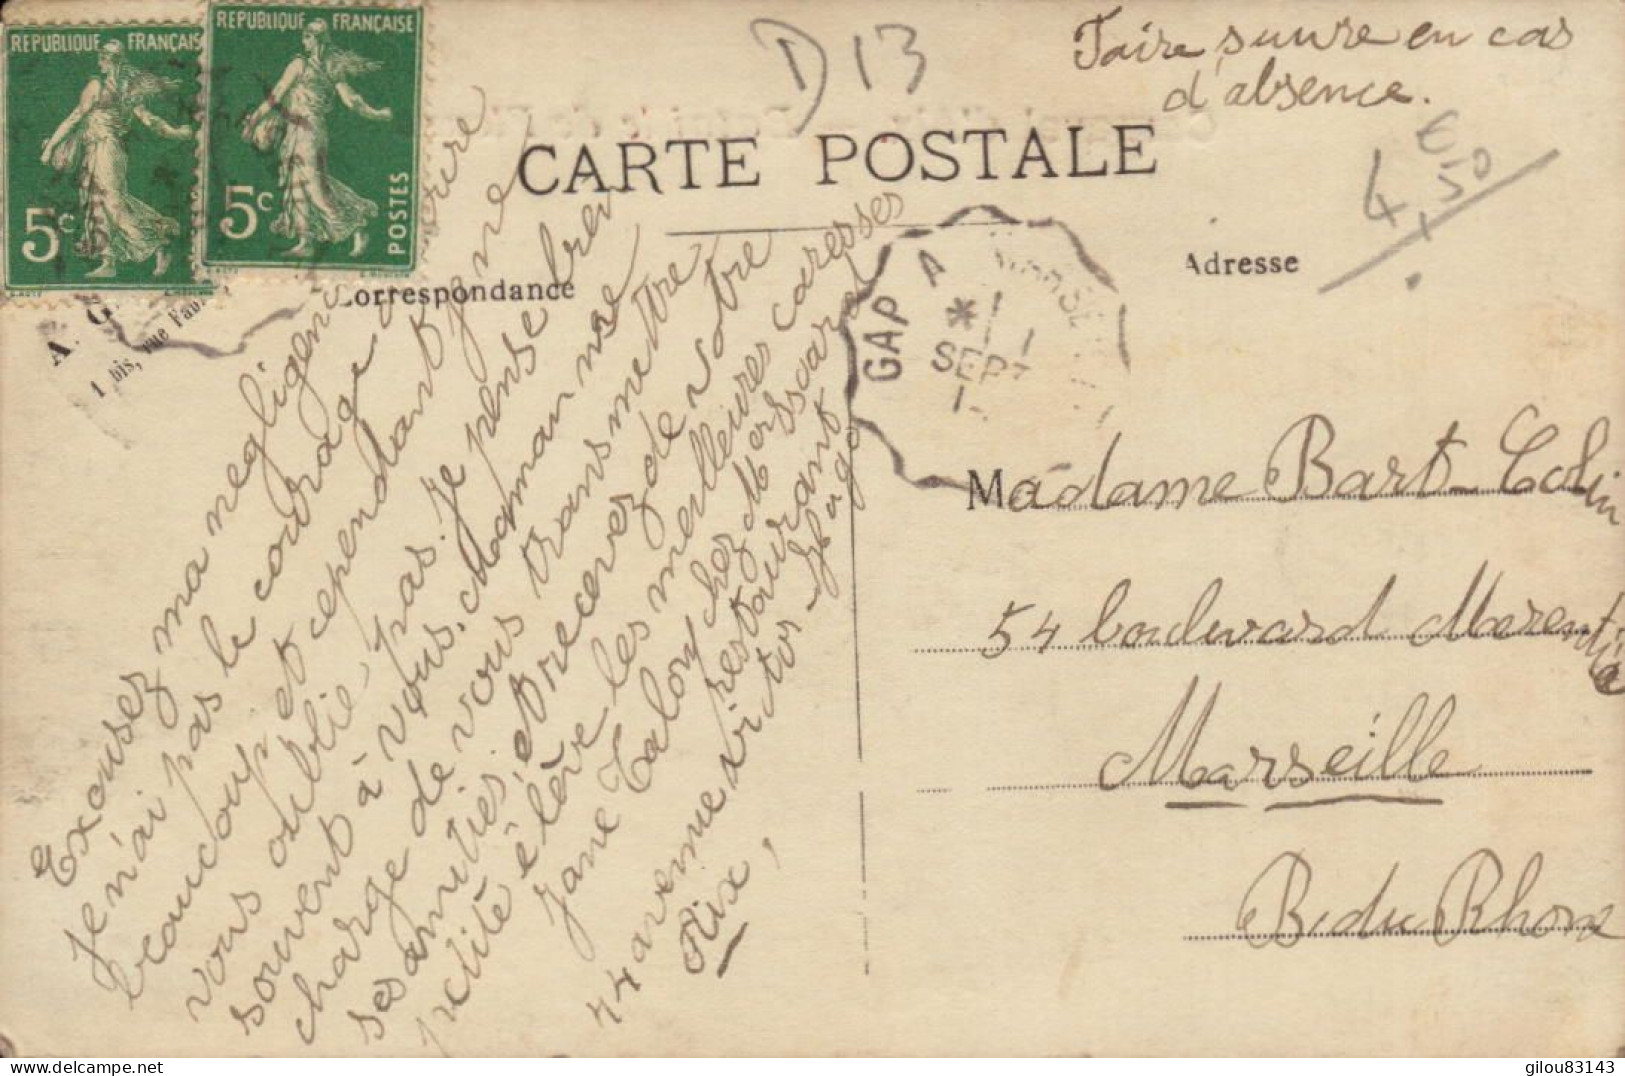 REPUBLIQUE FRANÇAISE
5c
REPUBLIQUE FRANÇAISE
5c
POSTES
D13
Faire suivre en cas
d'absence.
4
CARTE POSTALE
Correspondance
Adresse
A. G.
1 bis, rue
GAP A
SEPT
Excusez ma negligence
Je n'ai pas le courage d'écrire
beaucoup et cependant je ne
vous oublie pas. Je pense bien
souvent à vous. Maman me
charge de vous transmettre
ses amitiés, et recevez de votre
petite élève les meilleures caresses
Jane Talon chez Mer
restaurant
44 avenue victor-Hugo
Aix,
Madame Bart-Colin
54 boulevard Merentié
Marseille
B. du Rhone
delcampe.net
gilou83143